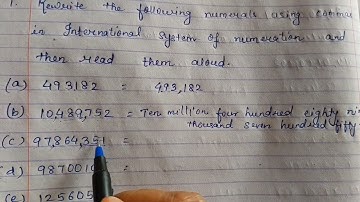 1. Rewrite the following numerals using commas
in International system of numeration and
then read them aloud.
(a) 493182 = 493,182
(b) 10489,752 = Ten million four hundred eighty
thousand seven hundred fifty
(c) 97,864,351 =
(d) 98700
(e) 125605